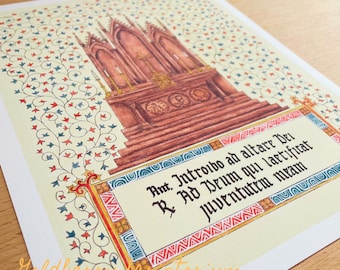 Ant. Introibo ad altare Dei
℟ Ad Deum qui laetificat
juventutem meam